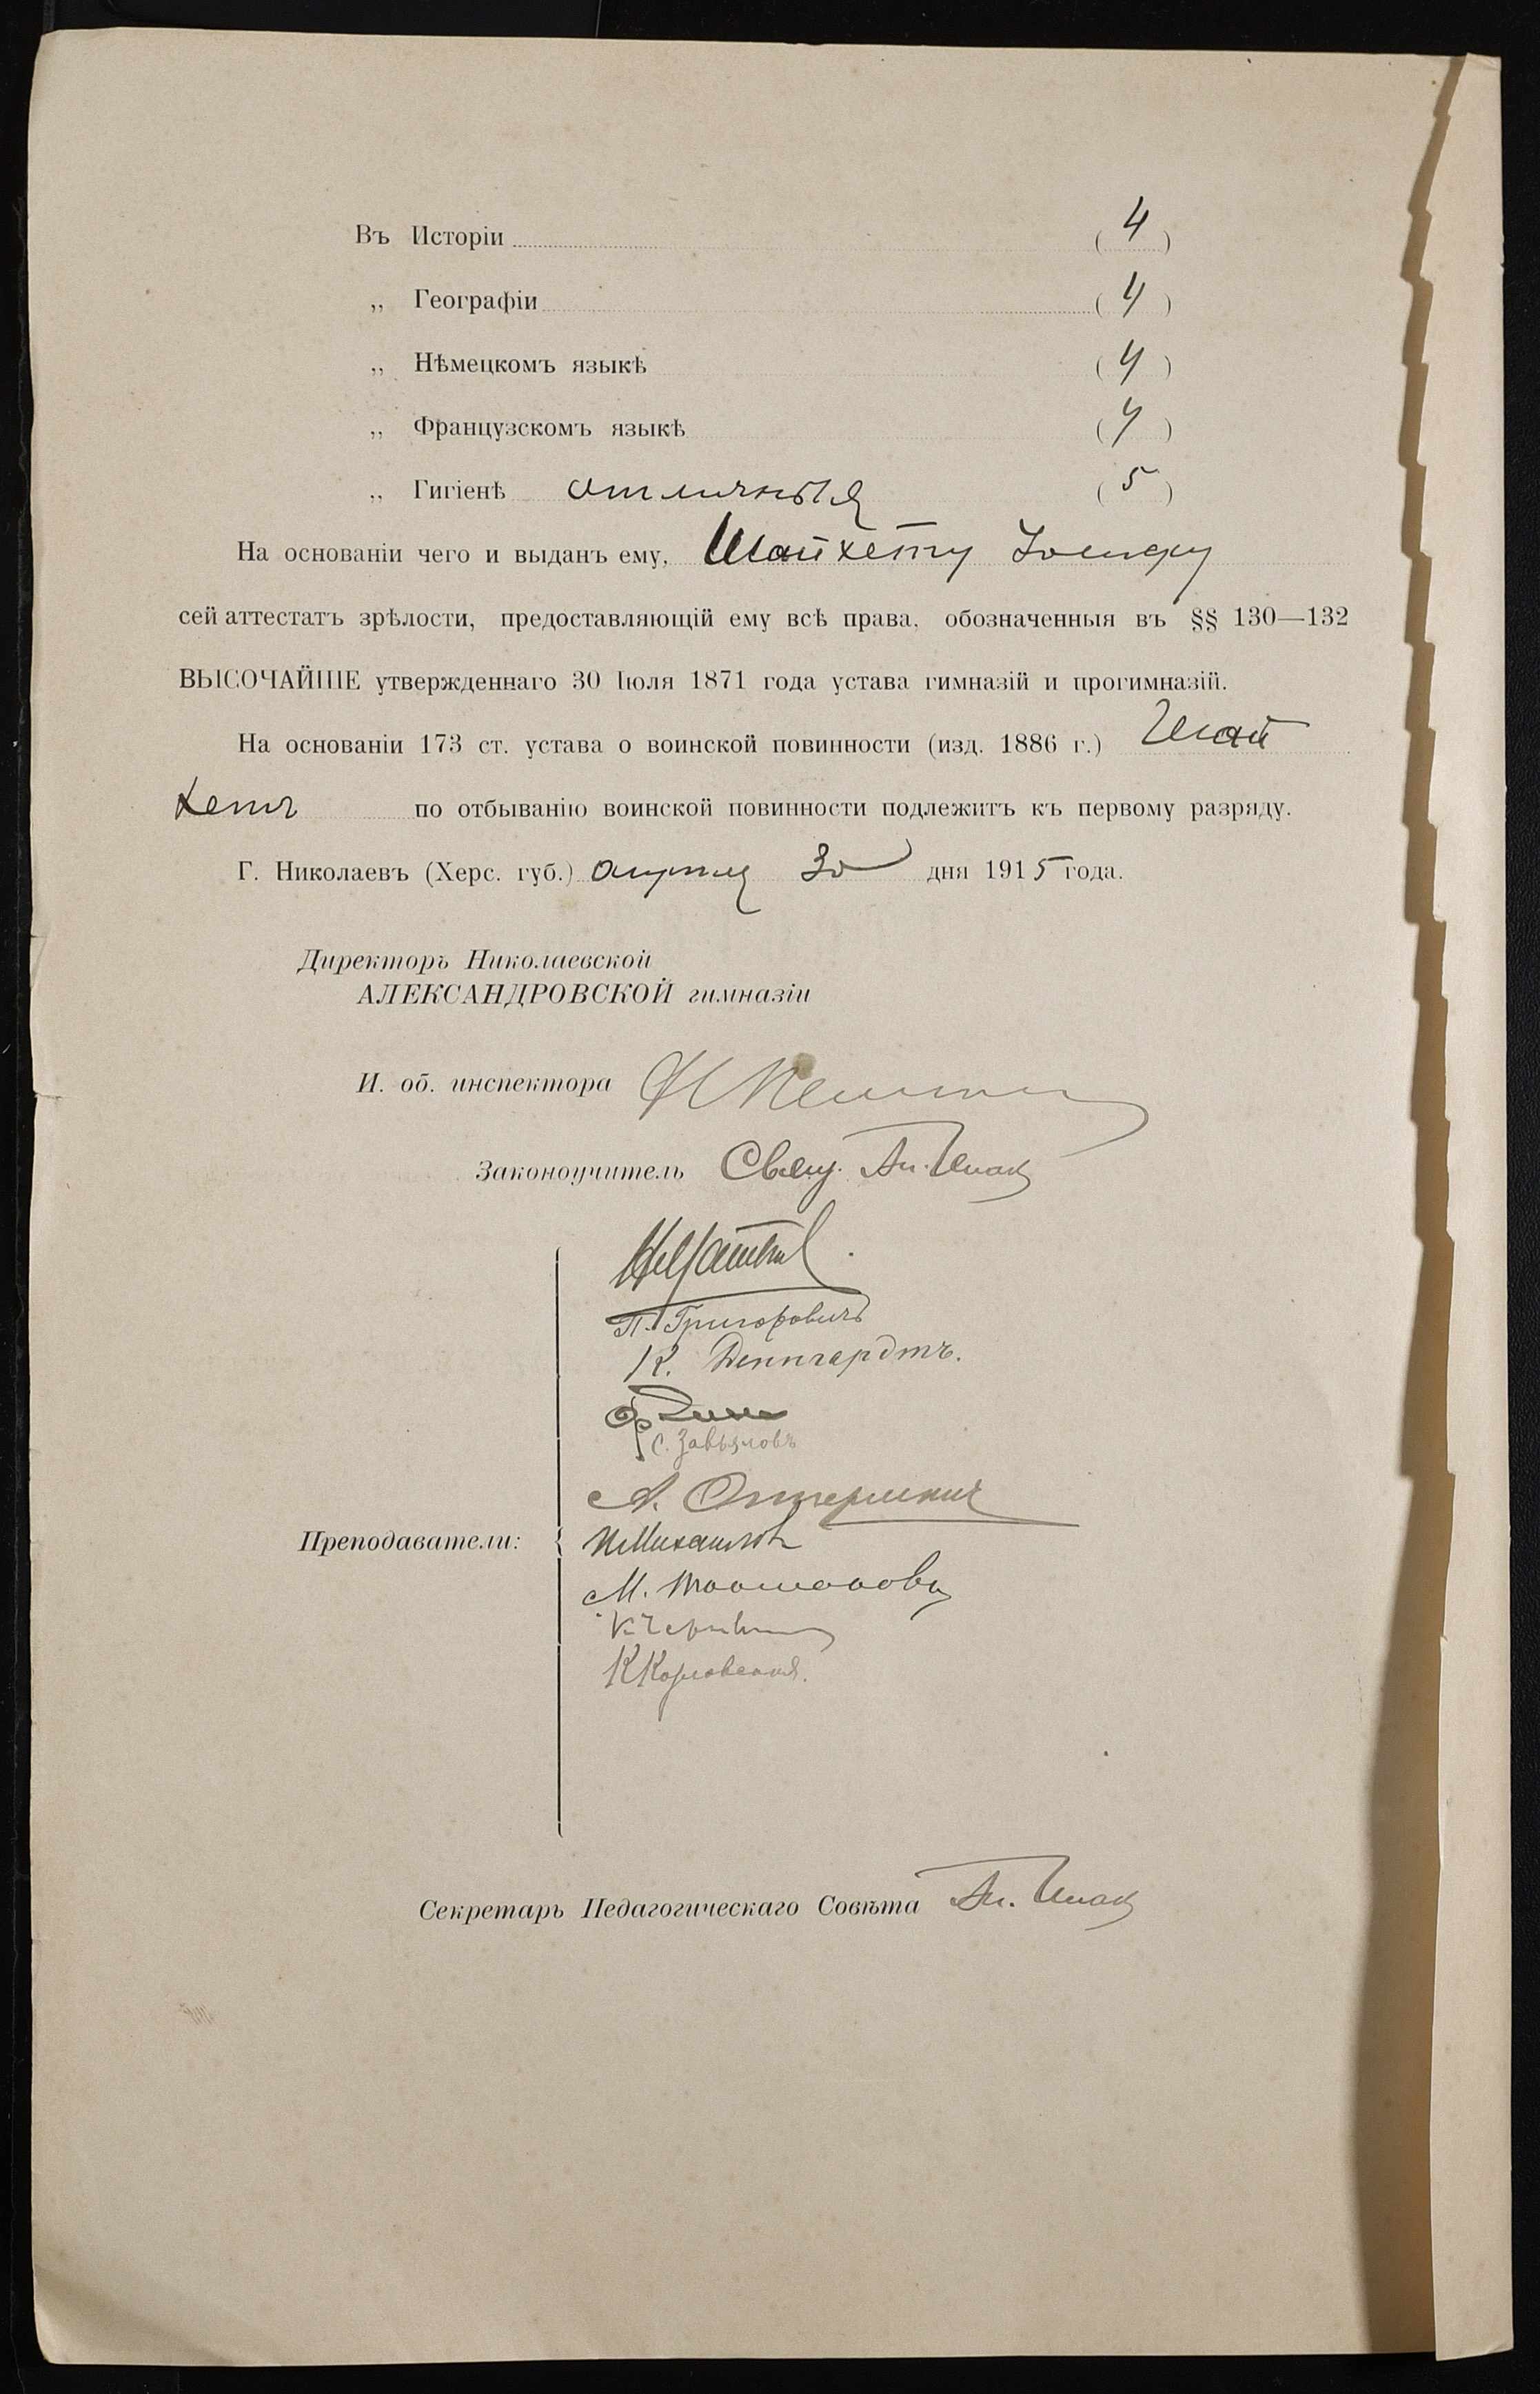 Въ Исторіи (4)
„ Географіи (4)
„ Нѣмецкомъ языкѣ (4)
„ Французскомъ языкѣ (4)
„ Гигіенѣ отличныя (5)
На основаніи чего и выданъ ему, Шайхету
сей аттестатъ зрѣлости, предоставляющій ему всѣ права, обозначенныя въ §§ 130—132
ВЫСОЧАЙШЕ утвержденнаго 30 Іюля 1871 года устава гимназій и прогимназій.
На основаніи 173 ст. устава о воинской повинности (изд. 1886 г.) Шай
хетъ по отбыванію воинской повинности подлежитъ къ первому разряду.
Г. Николаевъ (Херс. губ.) апрѣля 30 дня 1915 года.
Директоръ Николаевской
АЛЕКСАНДРОВСКОЙ гимназіи
И. об. инспектора
Законоучитель Свящ. Ал. Шпак
П. Григоровичъ
К. Деннгардтъ.
С. Завьяловъ
А.
Преподаватели: Михайловъ
М.
К
К
Секретарь Педагогическаго Совѣта Ал. Шпак